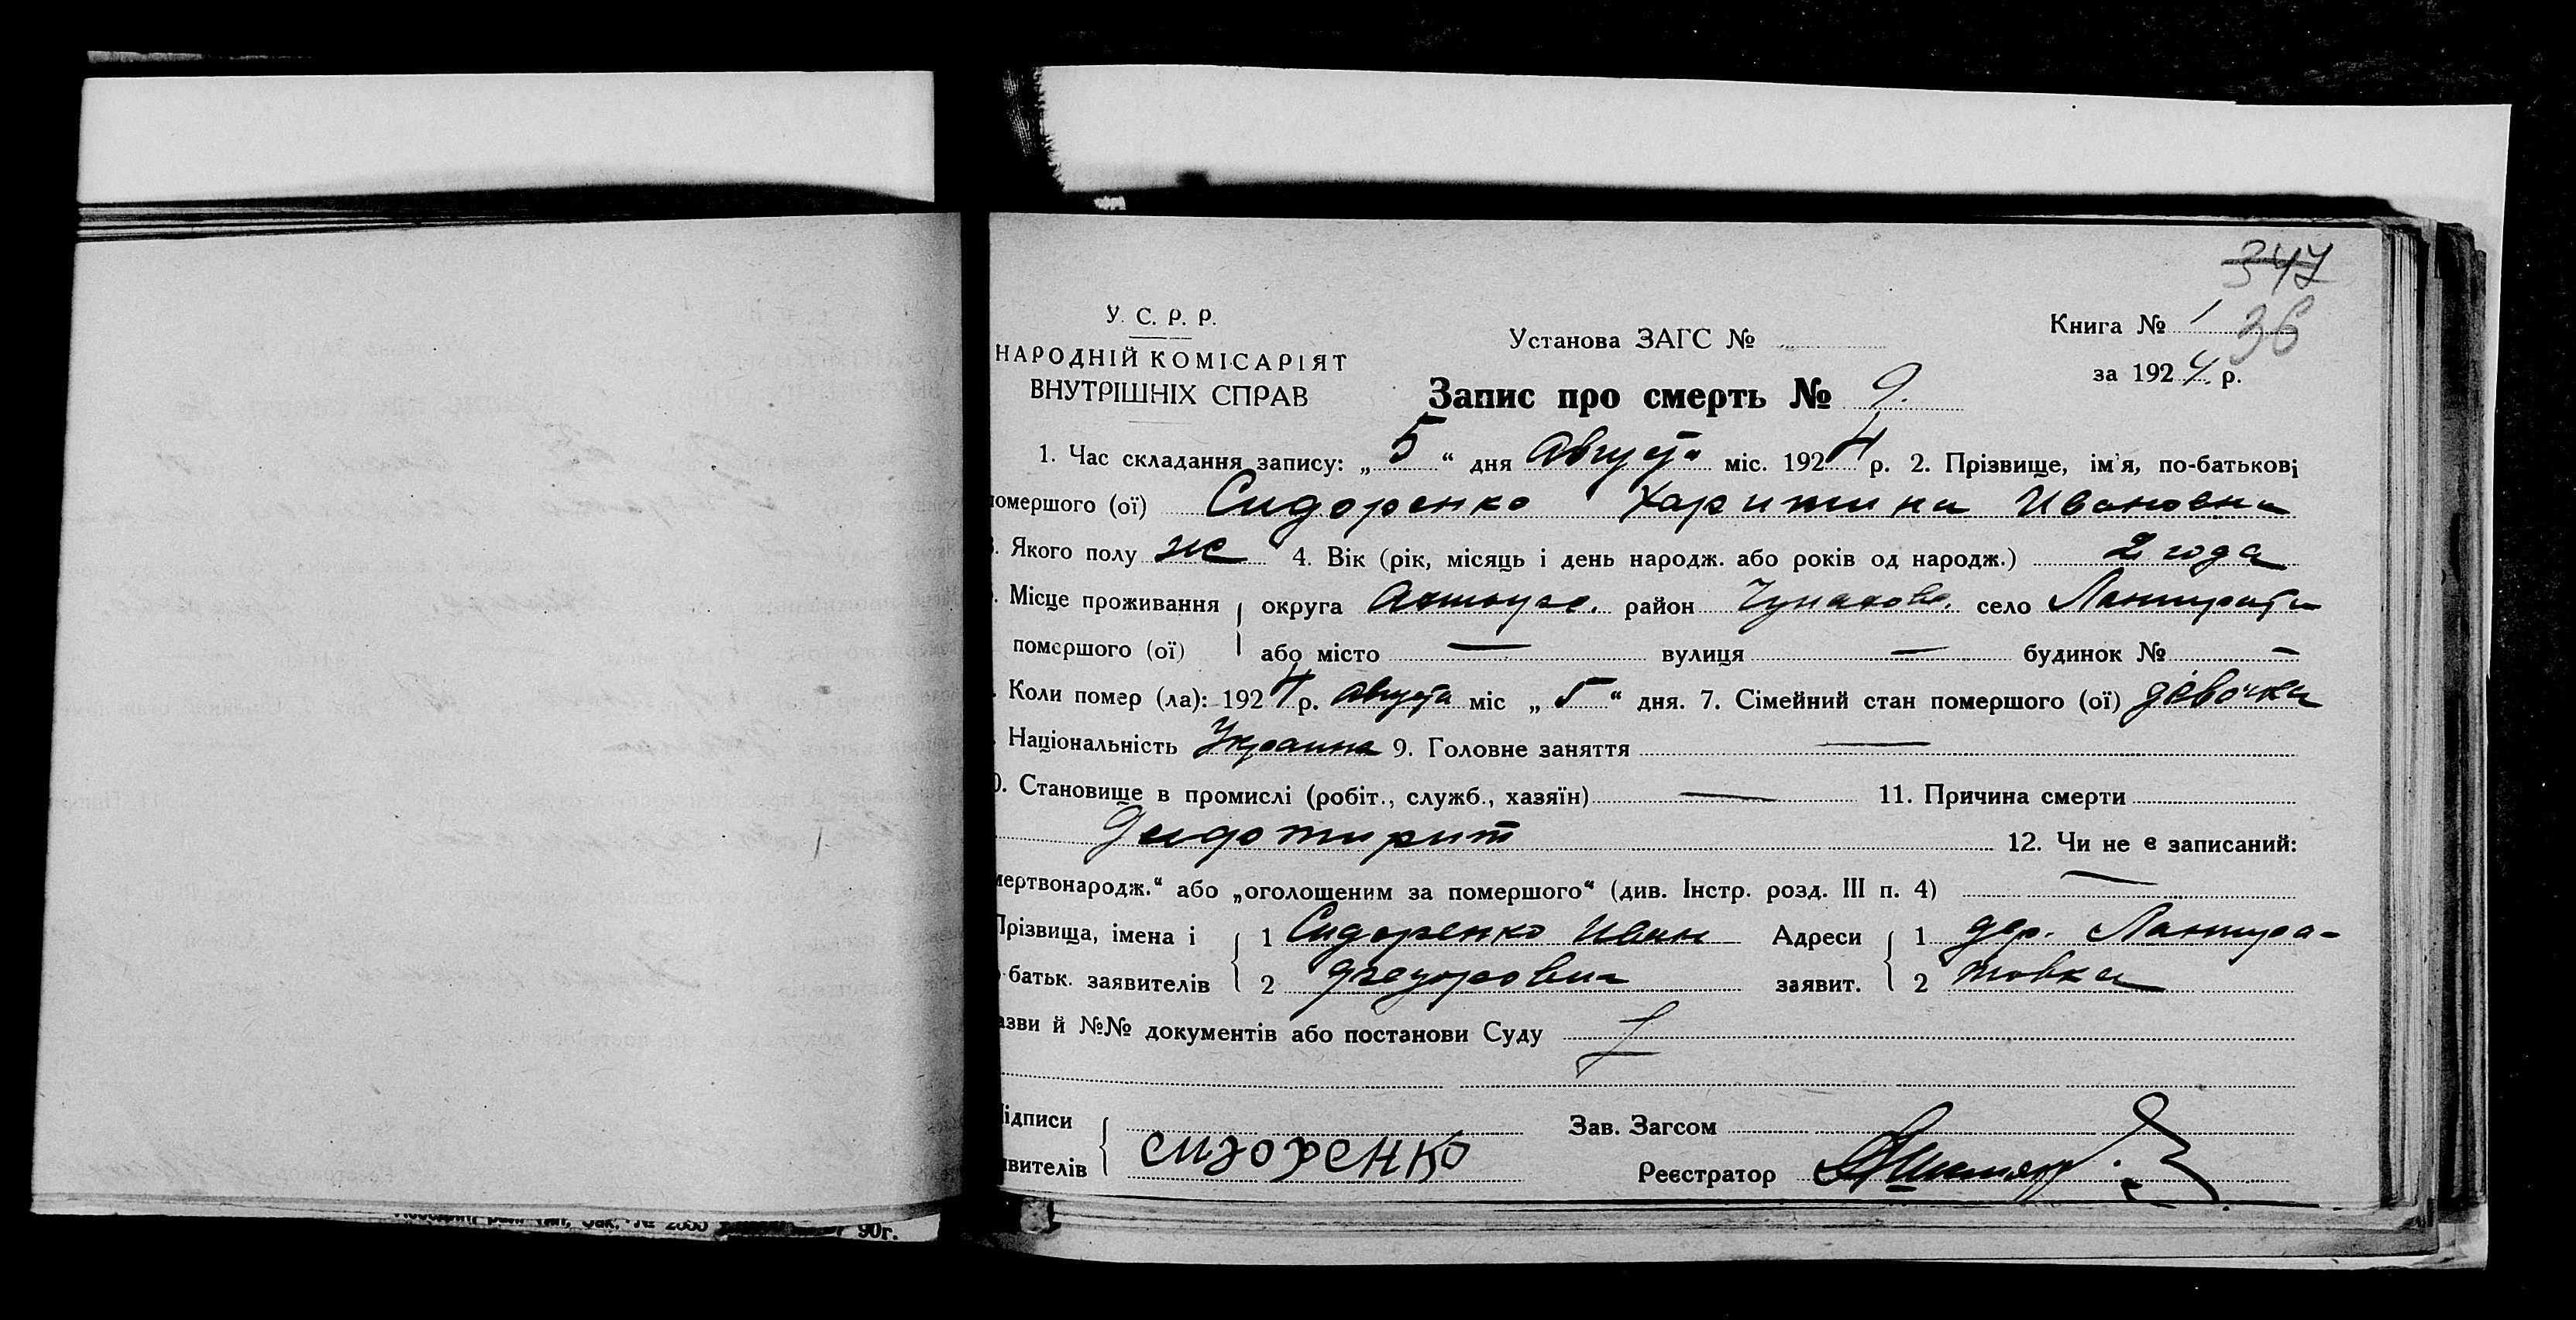 347
У. С. Р. Р.
НАРОДНІЙ КОМІСАРІЯТ
ВНУТРІШНІХ СПРАВ
Установа ЗАГС №
Книга № 1 36
за 1924 р.
Запис про смерть № 9.
1. Час складання запису: „5“ дня Августа міс. 1924 р. 2. Прізвище, ім'я, по-батькові
помершого (ої) Сидоренко Харитина Ивановна
. Якого полу же 4. Вік (рік, місяць і день народж. або років од народж.) 2 года
. Місце проживання округа район село
помершого (ої) або місто — вулиця — будинок № —
. Коли помер (ла): 1924 р. Августа міс „5“ дня. 7. Сімейний стан помершого (ої) девочка
. Національність 9. Головне заняття —
0. Становище в промислі (робіт., служб., хазяїн) — 11. Причина смерти
12. Чи не є записаний:
мертвонародж.“ або „оголошеним за помершого“ (див. Інстр. розд. III п. 4) —
Прізвища, імена і 1 Сидоренко Иван Адреси 1 дер.
батьк. заявителів 2 заявит. 2
азви й №№ документів або постанови Суду
ідписи Зав. Загсом
явителів сидоренко Реєстратор
Зак. № 2555 90г.